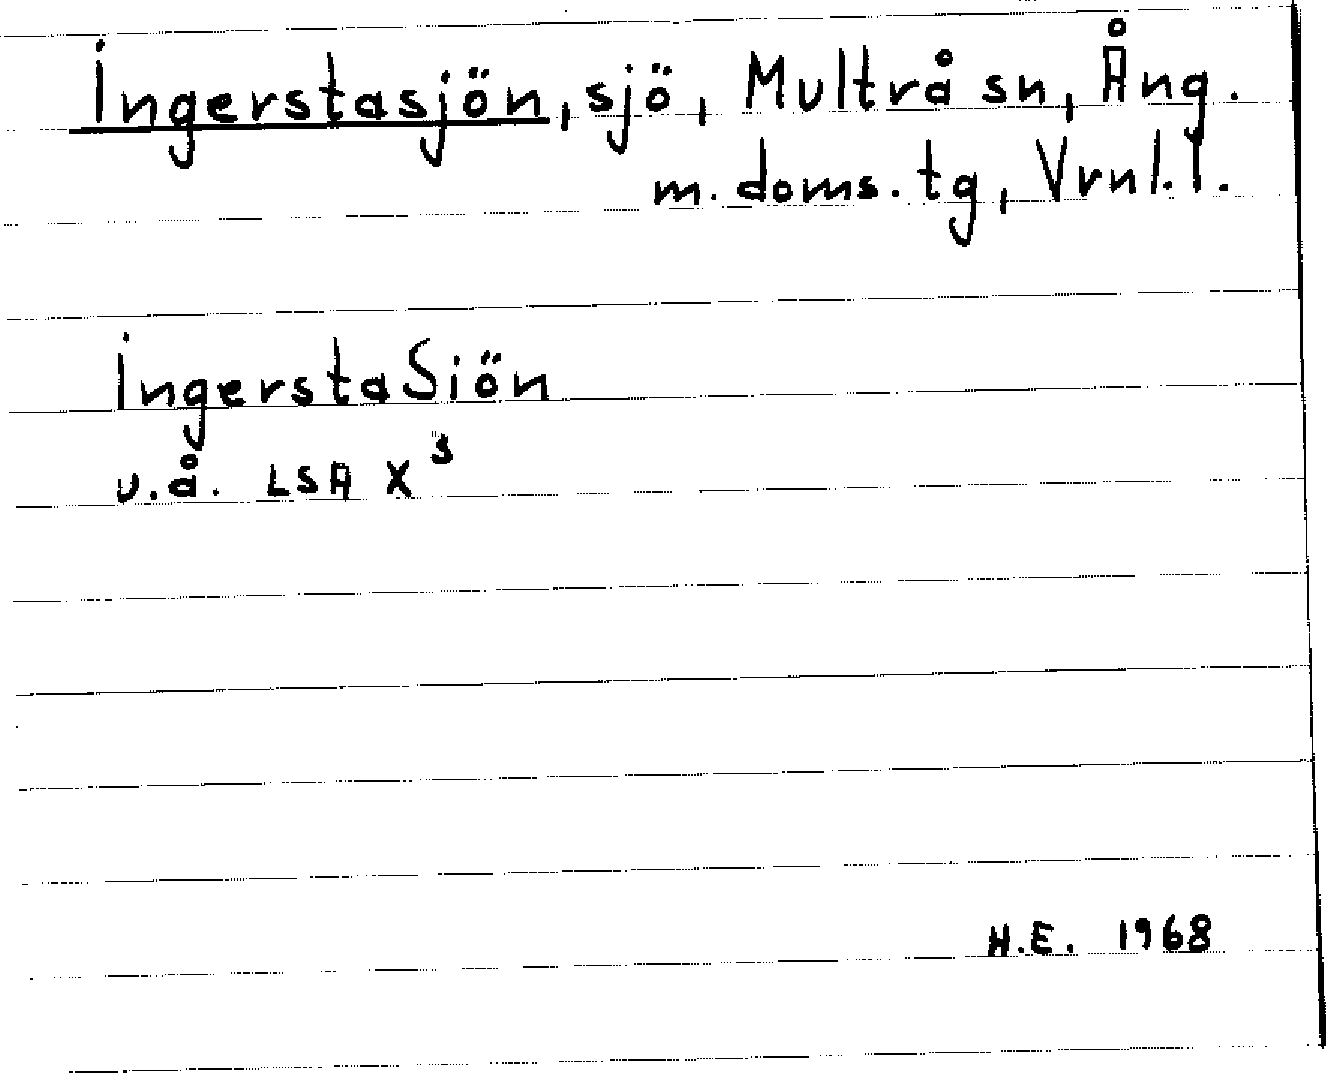 Ingerstasjön, sjö, Multrå sn, Ång.
m. doms. tg, Vrnl. l.
IngerstaSiön
u.å. LSA X³
H.E. 1968